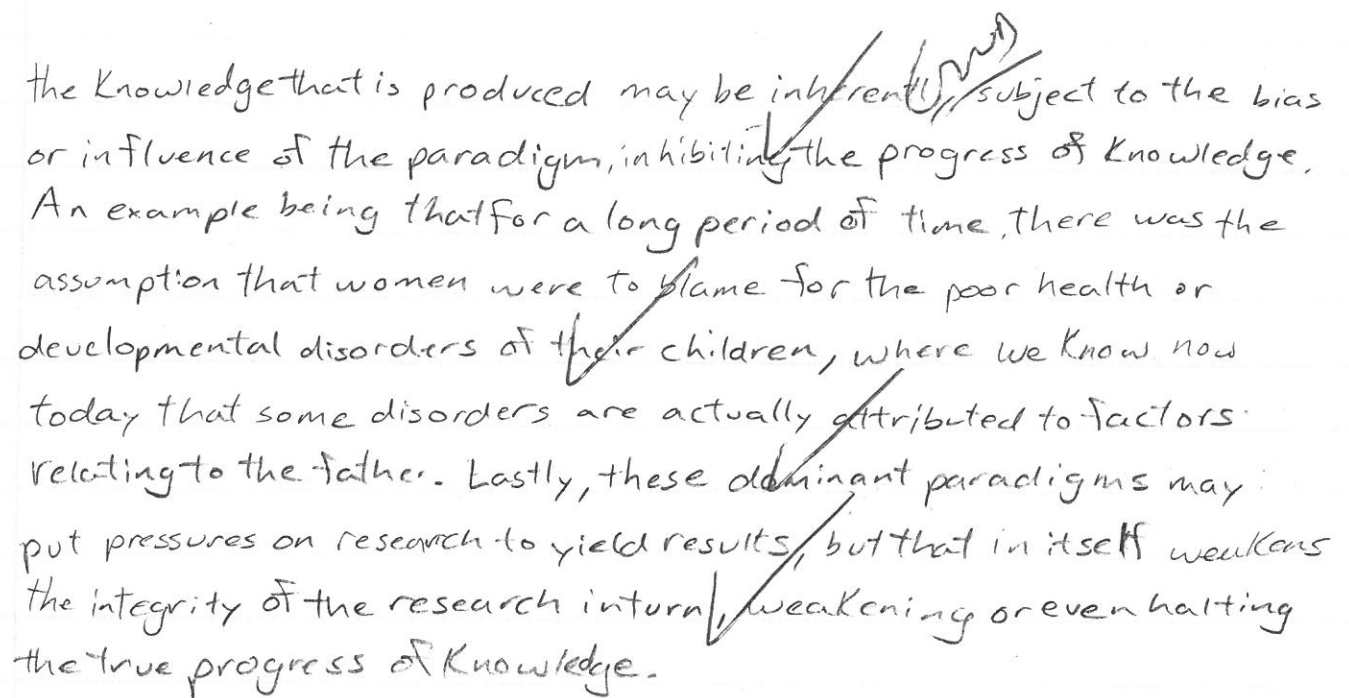 the Knowledge that is produced may be inherently, subject to the bias
or influence of the paradigm, inhibiting the progress of Knowledge.
An example being that for a long period of time, there was the
assumption that women were to blame for the poor health or
developmental disorders of their children, where we Know now
today that some disorders are actually attributed to factors
relating to the father. Lastly, these dominant paradigms may
put pressures on research to yield results, but that in itself weakens
the integrity of the research inturn, weakening or even halting
the true progress of Knowledge.